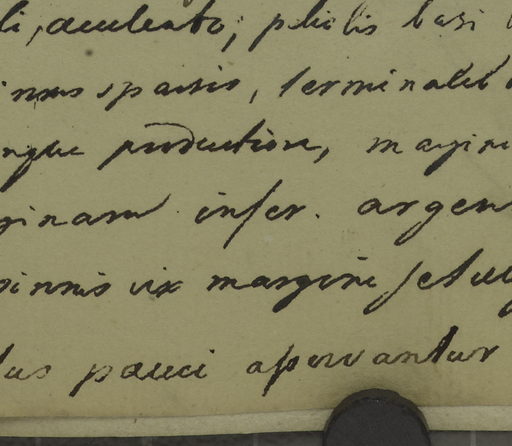 li, aculeato; pholis basi
inms sparsis, terminalib
ngue productione, margine
ginam infer. argen
pinnis vix margine setul
lus pauci aservantur